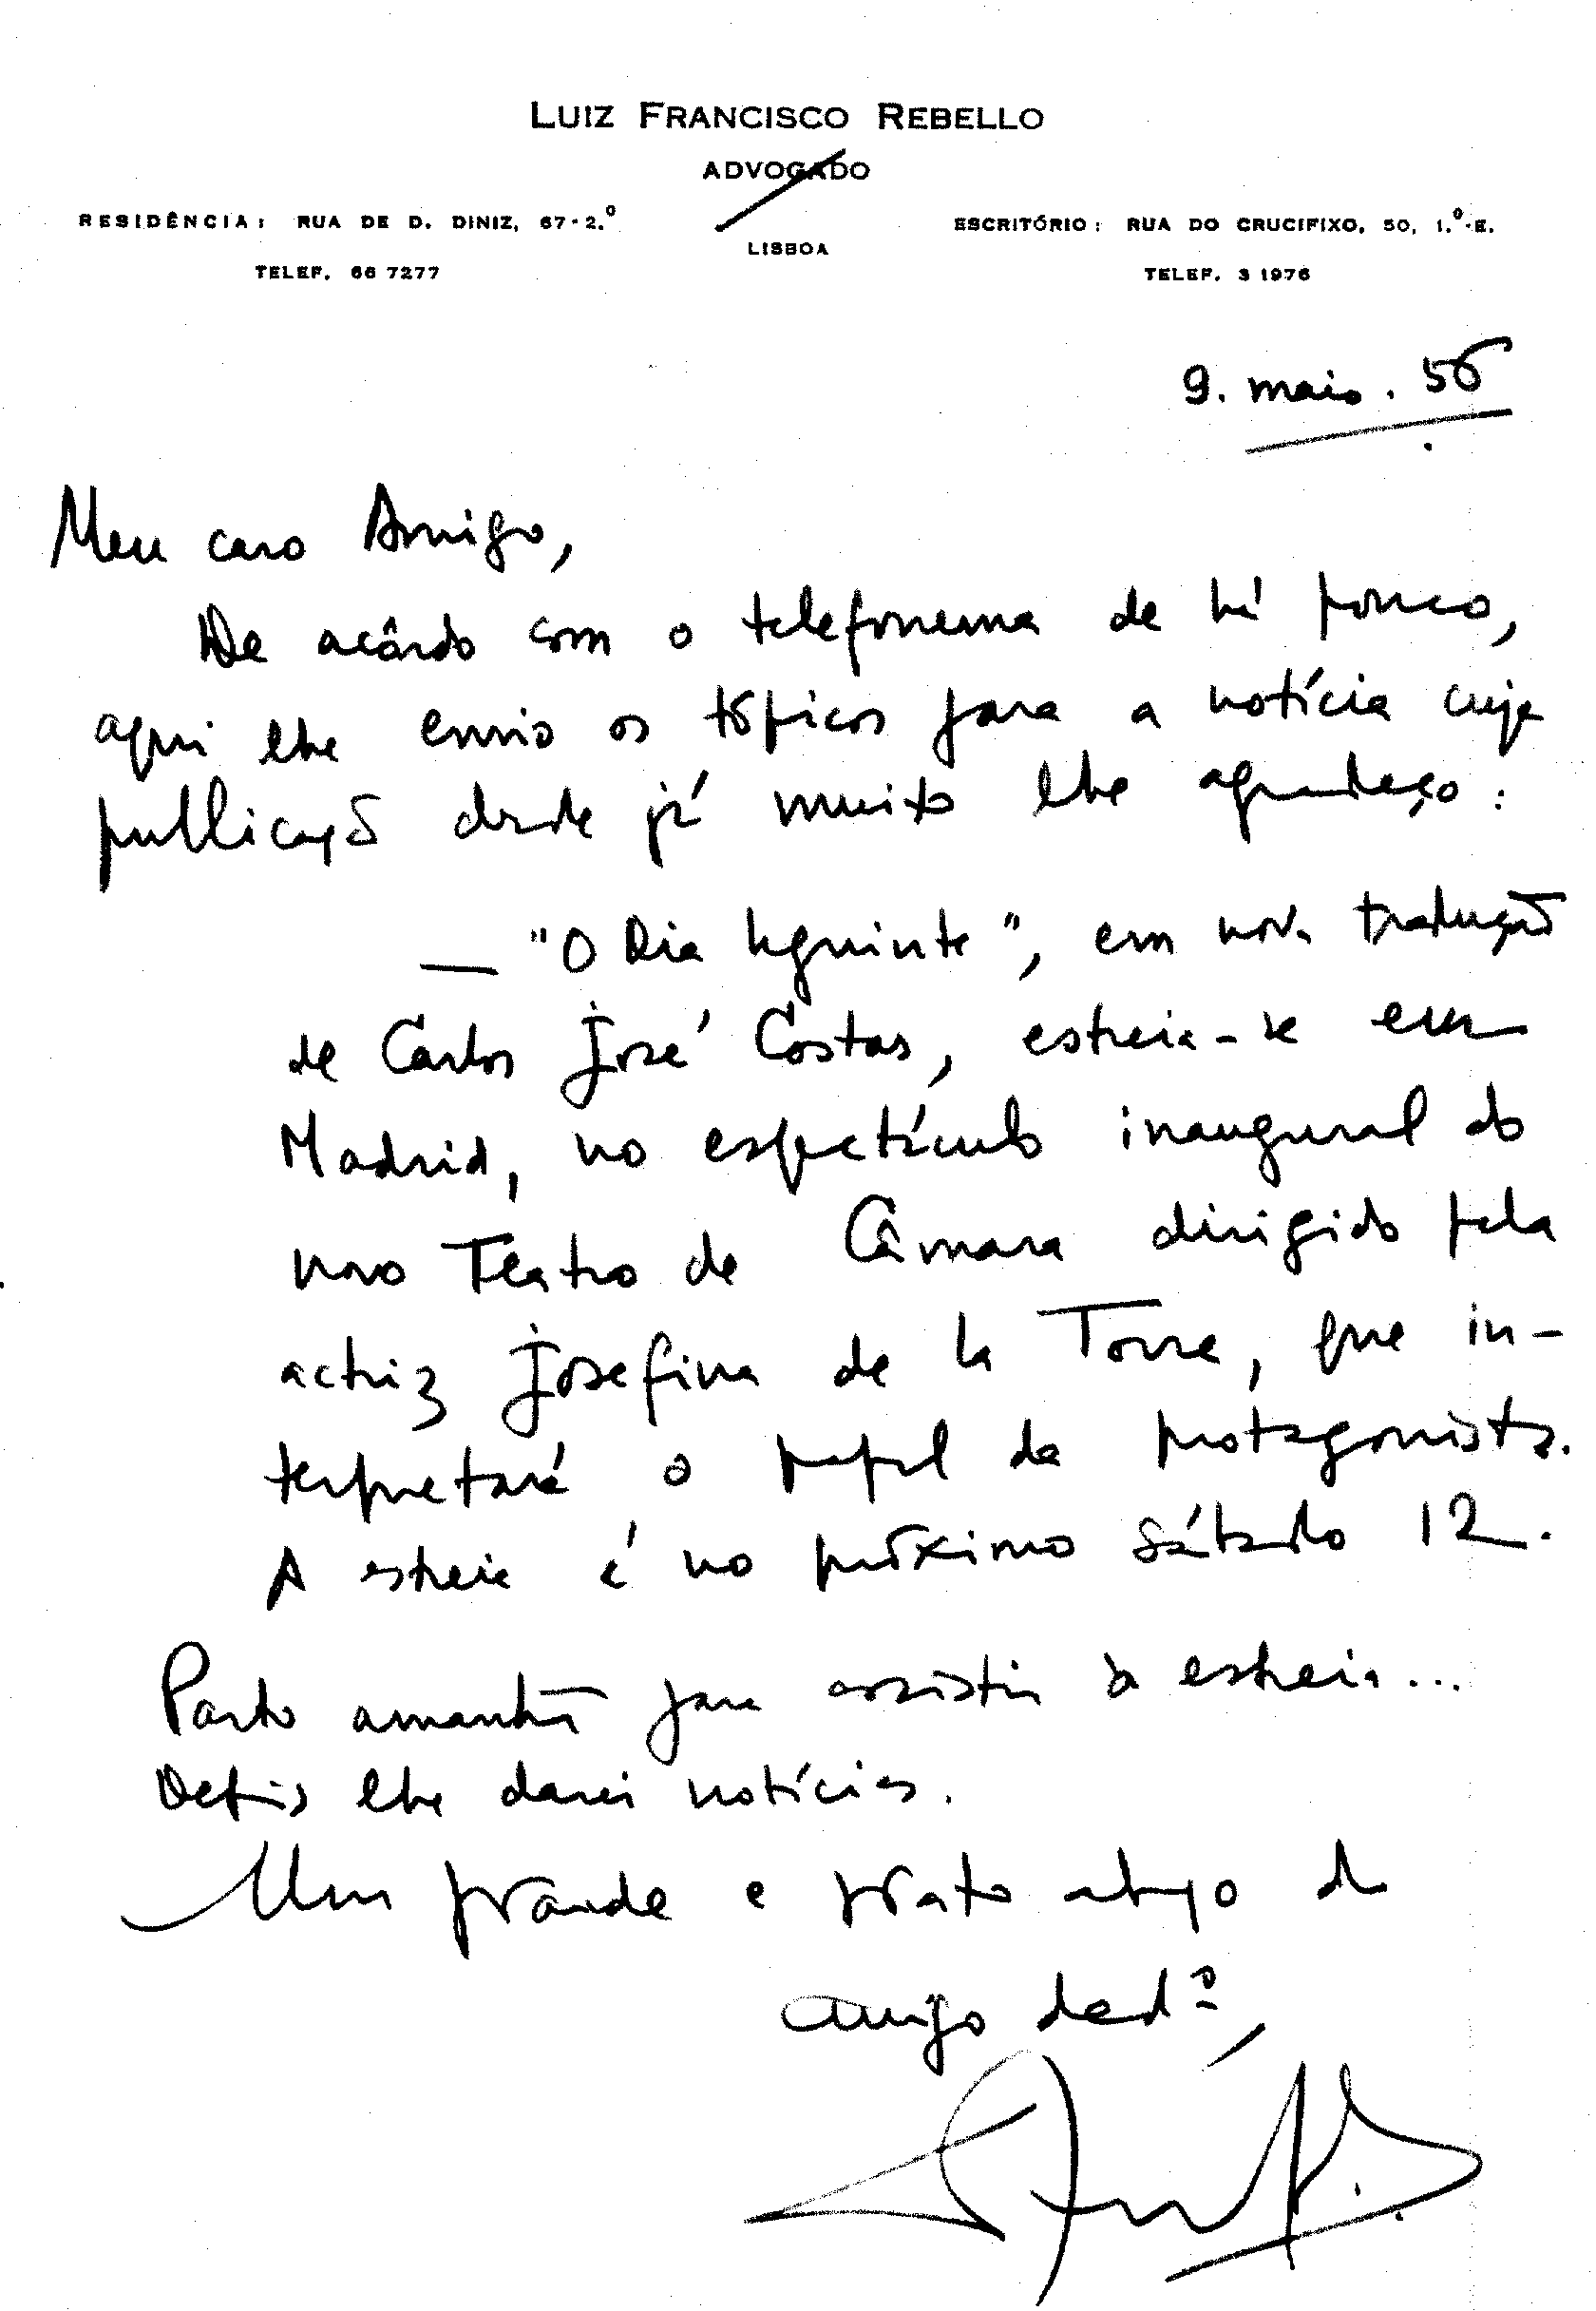 LUIZ FRANCISCO REBELLO
ADVOGADO
RESIDÊNCIA: RUA DE D. DINIZ, 67-2.º
TELEF. 66 7277
LISBOA
ESCRITÓRIO: RUA DO CRUCIFIXO, 50, 1.º-E.
TELEF. 3 1976
9. maio. 56
Meu caro Amigo,
De acôrdo com o telefonema de há pouco,
aqui lhe envio os tópicos para a notícia cuja
publicação desde já muito lhe agradeço:
— "O Dia Seguinte", em nova tradução
de Carlos José Costas, estreia-se em
Madrid, no espectáculo inaugural do
novo Teatro de Câmara dirigido pela
actriz Josefina de la Torre, que in-
terpretará o papel da protagonista.
A estreia é no próximo sábado 12.
Parto amanhã para assistir à estreia...
Depois lhe darei notícias.
Um grande e grato abraço do
amigo ded.º,